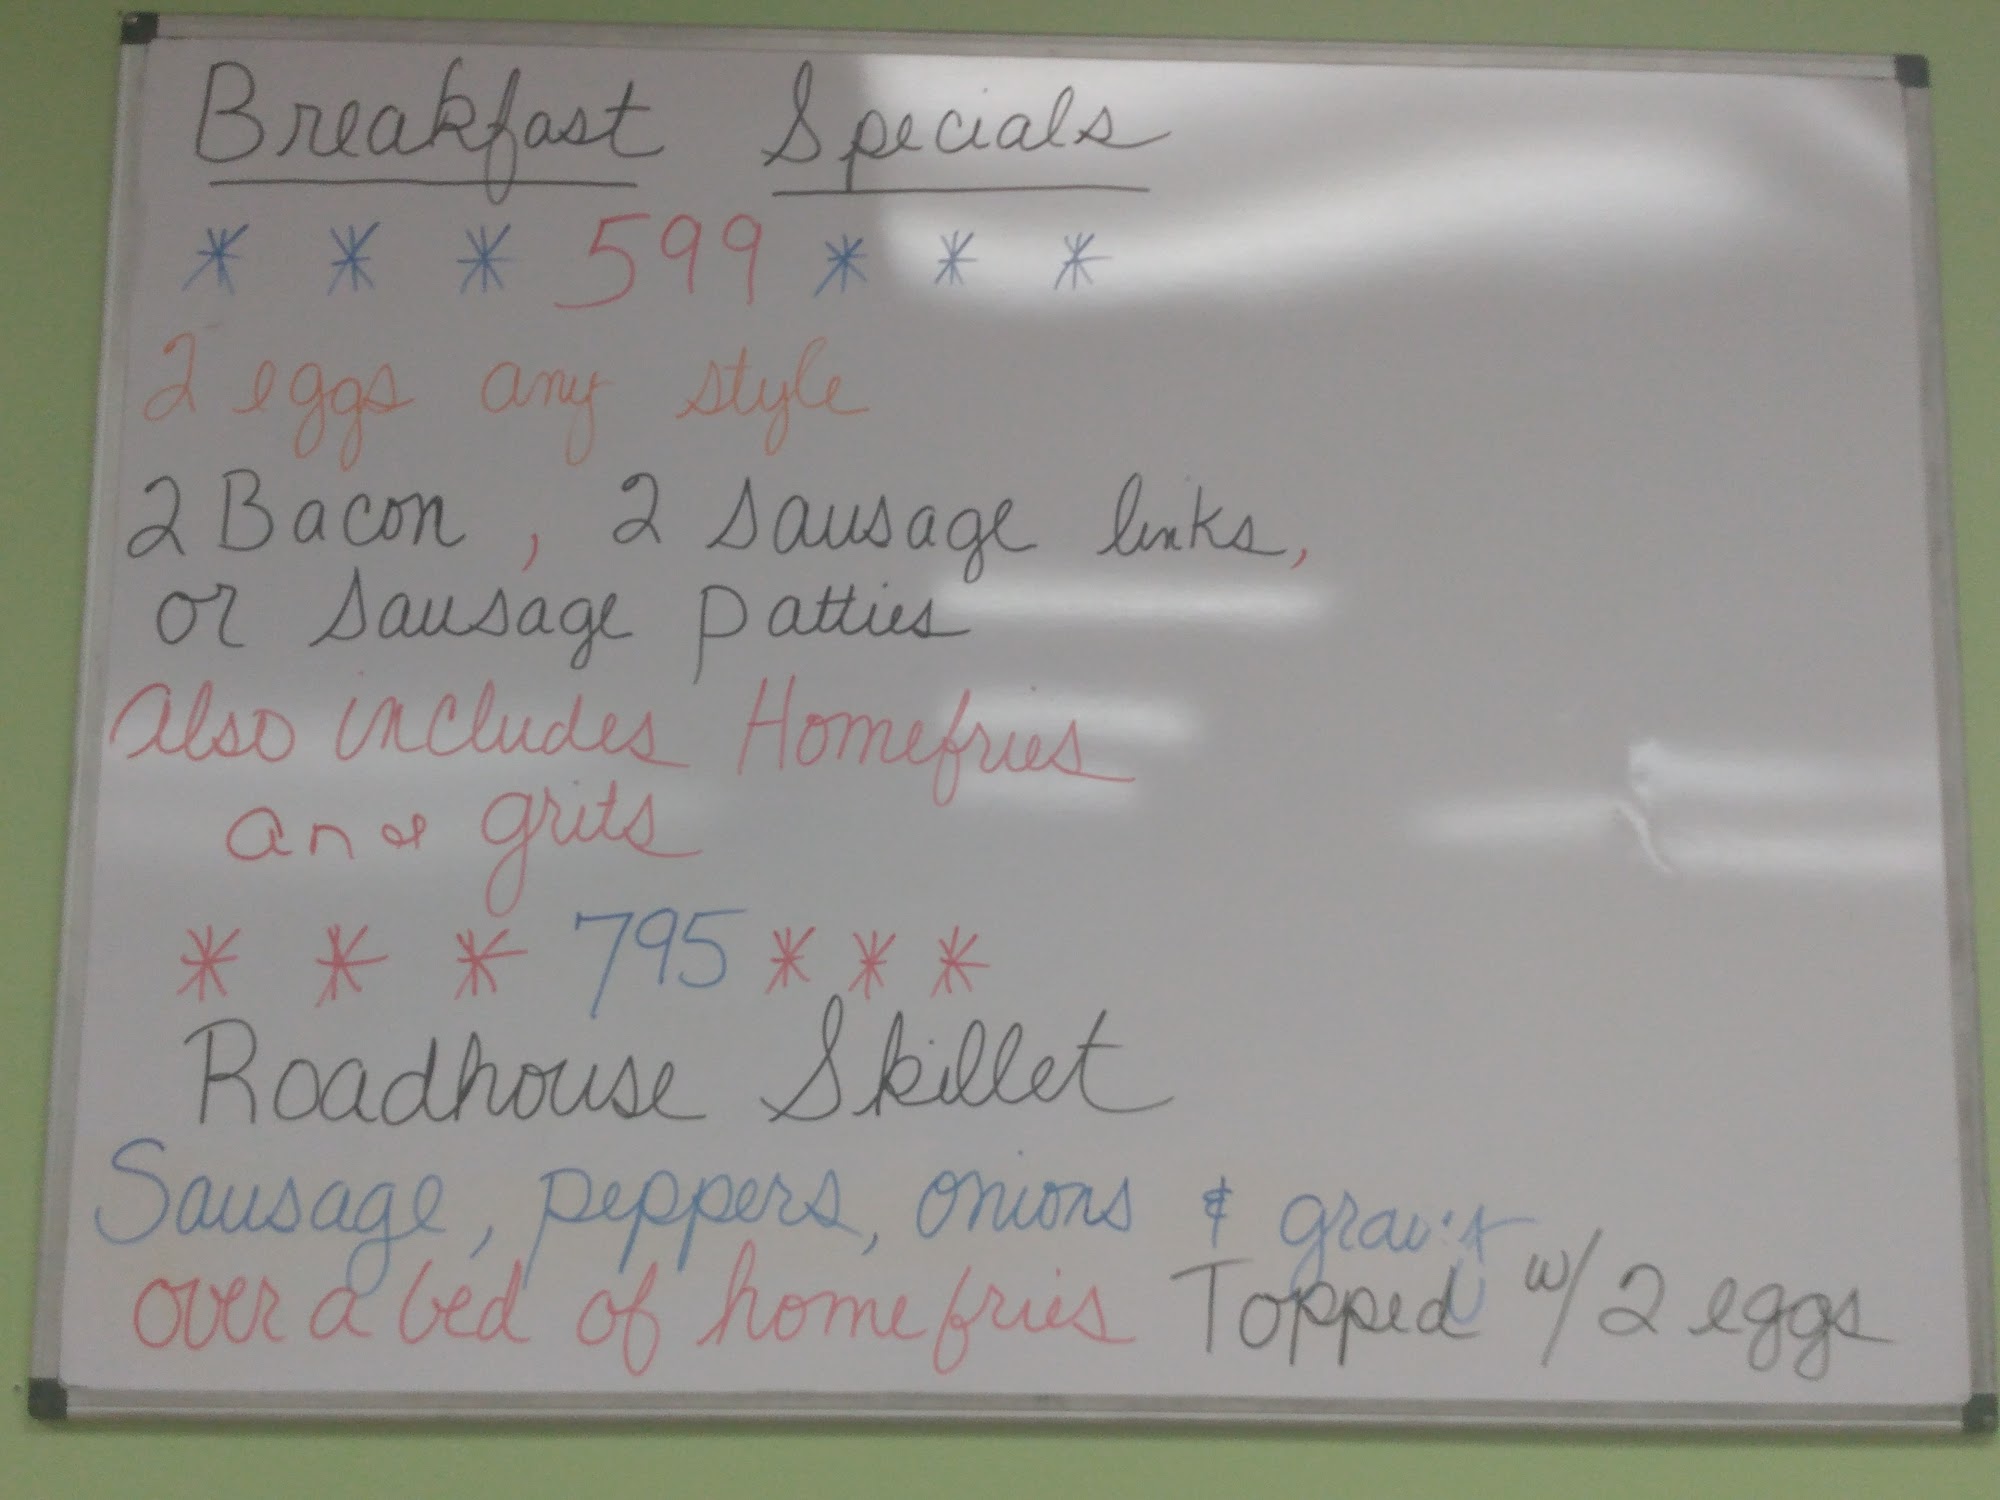 Breakfast Specials
* * * 599 * * *
2 eggs any style
2 Bacon, 2 sausage links,
or sausage patties
also includes Homefries
and grits
* * * 795 * * *
Roadhouse Skillet
Sausage, peppers, onions & gravy
over a bed of homefries Topped w/ 2 eggs